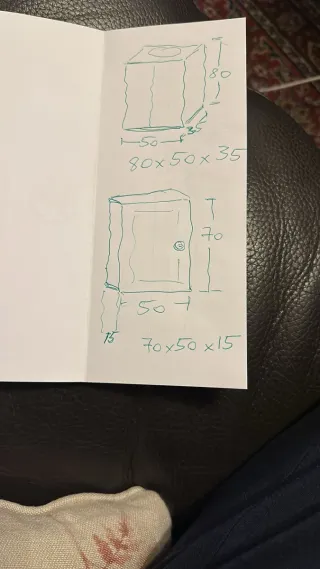 80
35
50
80x50x35
70
50
15
70x50x15